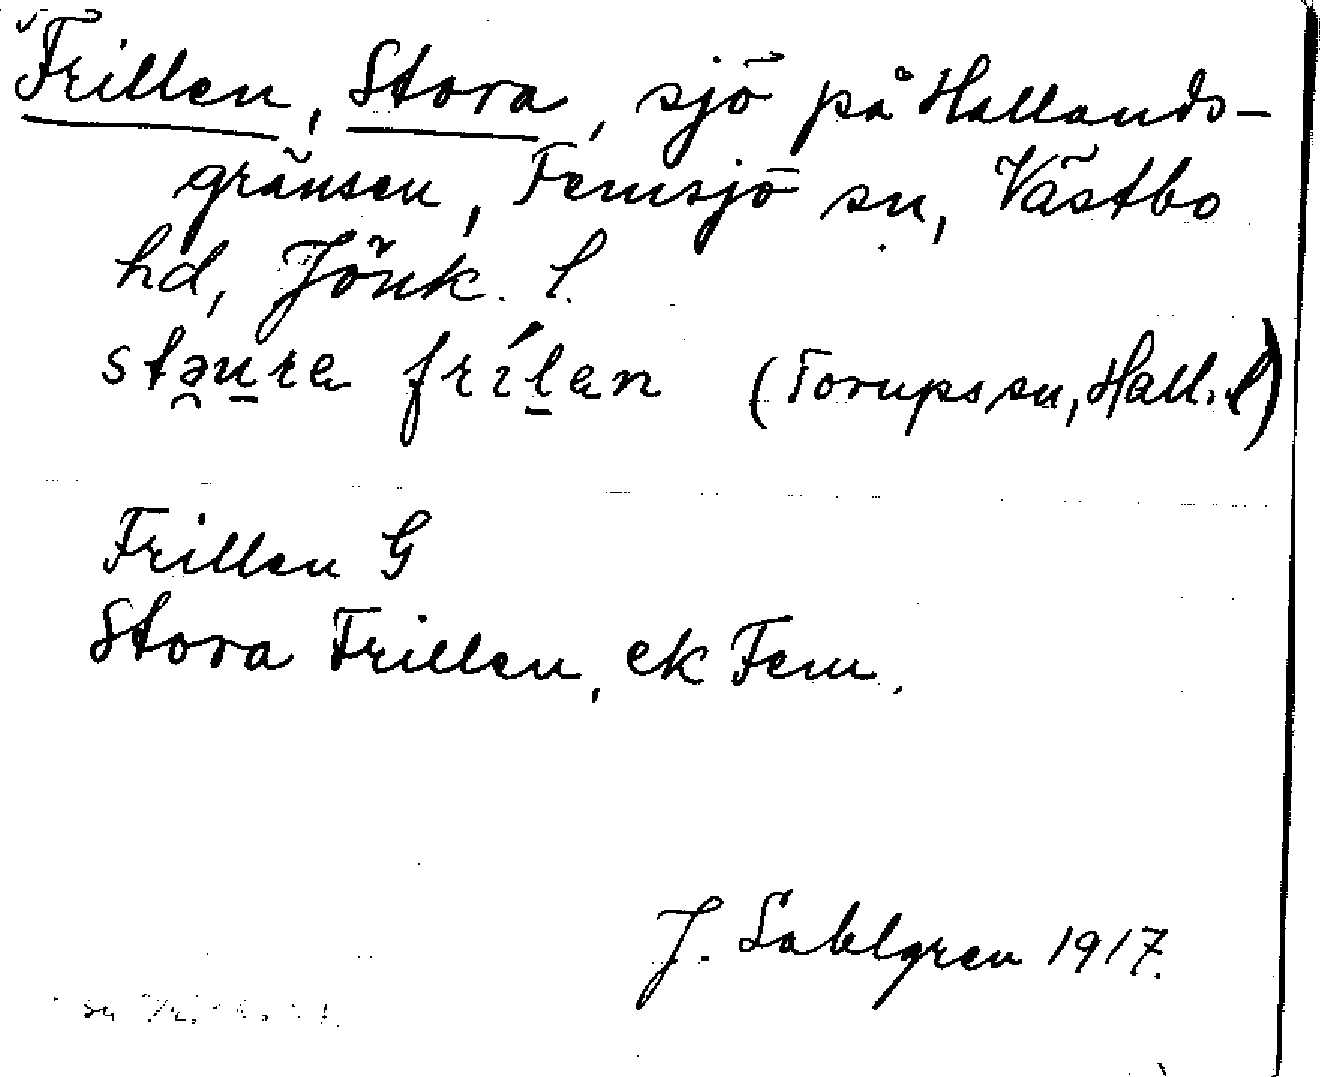 Frillen, Stora, sjö på Hallands-
gränsen, Femsjö sn, Västbo
hd, Jönk. l.
stəu̲ra fríl̲an (Torups sn, Hall. l)
Frillen G
Stora Frillen, ek Fem.
J. Sahlgren 1917.